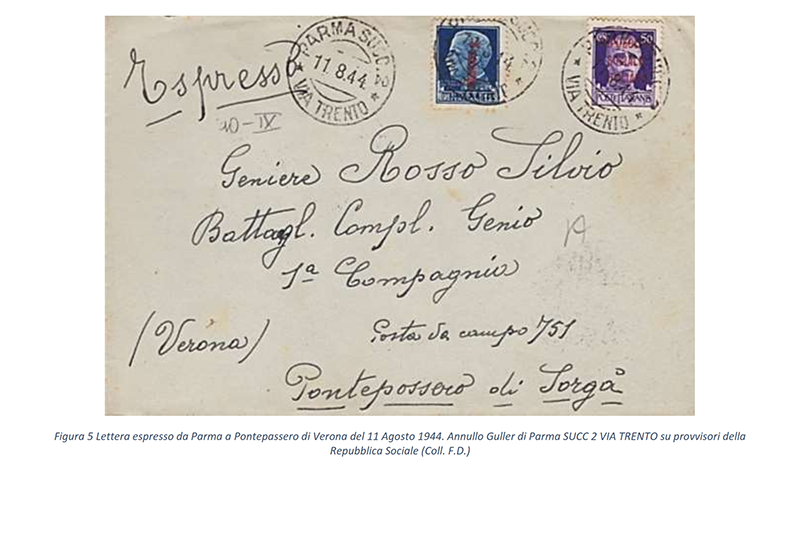 Espresso
PARMA SUCC 2
11.8.44
VIA TRENTO
50
POSTE ITALIANE
VIA TRENTO
10-IX
Geniere Rosso Silvio
Battagl. Compl. Genio
1ª Compagnia
(Verona) Posta da campo 751
Pontepossero di Sorgà
Figura 5 Lettera espresso da Parma a Pontepassero di Verona del 11 Agosto 1944. Annullo Guller di Parma SUCC 2 VIA TRENTO su provvisori della
Repubblica Sociale (Coll. F.D.)